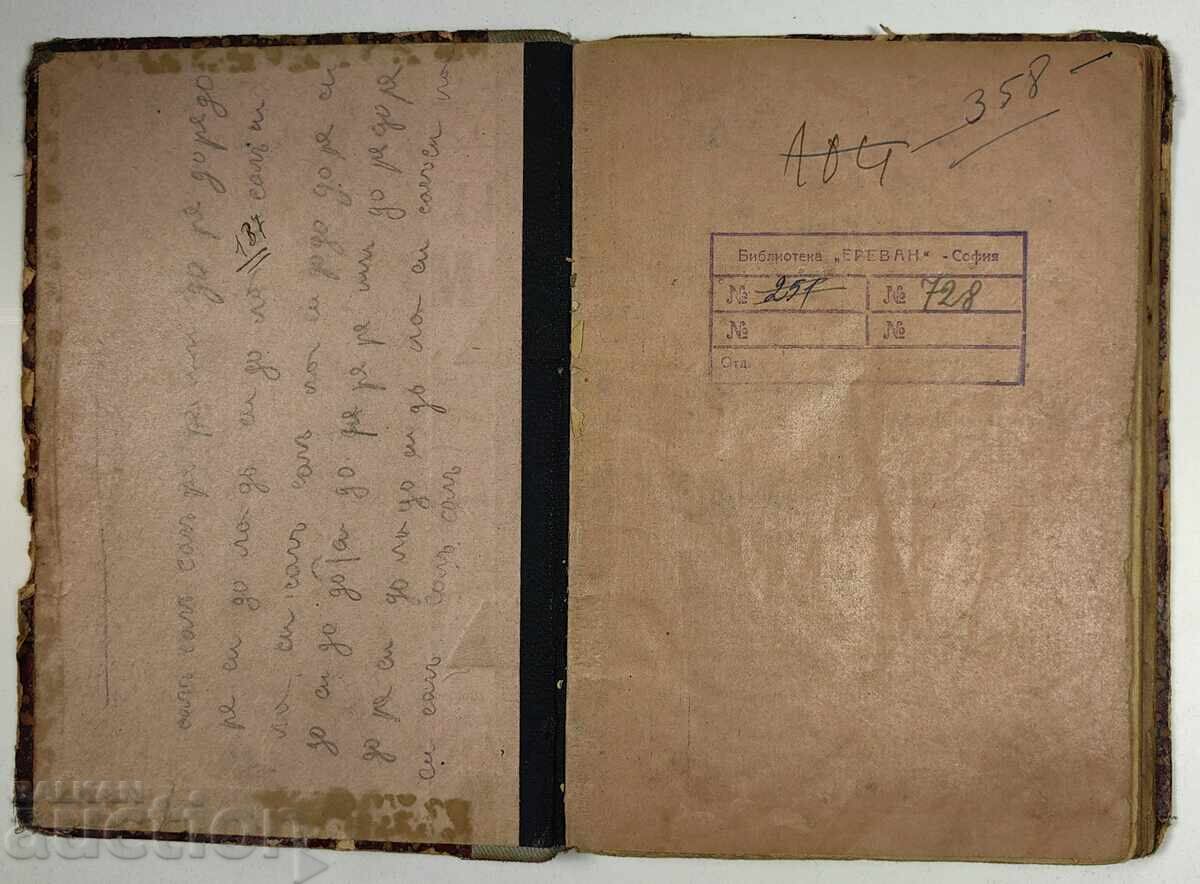 солъ солъ ре ре ми до ре до ре до
ре си до ла до си до ла солъ си
187
ла си солъ солъ ла си ре до до ре си
до си до до ре до ре ре ми до ре до ре
до ре си до ла до си до ла си солъ си ла
си солъ солъ солъ
358 -
104
Библиотека „ЕРЕВАН“ - София
№ 257 № 728
№ №
Отд.
BALKAN
auction